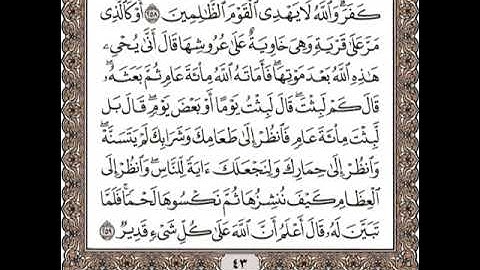 كَفَرَ ۗ وَٱللَّهُ لَا يَهْدِى ٱلْقَوْمَ ٱلظَّـٰلِمِينَ ﴿٢٥٨﴾ أَوْ كَٱلَّذِى
مَرَّ عَلَىٰ قَرْيَةٍ وَهِىَ خَاوِيَةٌ عَلَىٰ عُرُوشِهَا قَالَ أَنَّىٰ يُحْىِۦ
هَـٰذِهِ ٱللَّهُ بَعْدَ مَوْتِهَا ۖ فَأَمَاتَهُ ٱللَّهُ مِا۟ئَةَ عَامٍ ثُمَّ بَعَثَهُۥ ۖ
قَالَ كَمْ لَبِثْتَ ۖ قَالَ لَبِثْتُ يَوْمًا أَوْ بَعْضَ يَوْمٍ ۖ قَالَ بَل
لَّبِثْتَ مِا۟ئَةَ عَامٍ فَٱنظُرْ إِلَىٰ طَعَامِكَ وَشَرَابِكَ لَمْ يَتَسَنَّهْ ۖ
وَٱنظُرْ إِلَىٰ حِمَارِكَ وَلِنَجْعَلَكَ ءَايَةً لِّلنَّاسِ ۖ وَٱنظُرْ إِلَى
ٱلْعِظَامِ كَيْفَ نُنشِزُهَا ثُمَّ نَكْسُوهَا لَحْمًا ۚ فَلَمَّا
تَبَيَّنَ لَهُۥ قَالَ أَعْلَمُ أَنَّ ٱللَّهَ عَلَىٰ كُلِّ شَىْءٍ قَدِيرٌ ﴿٢٥٩﴾
٤٣